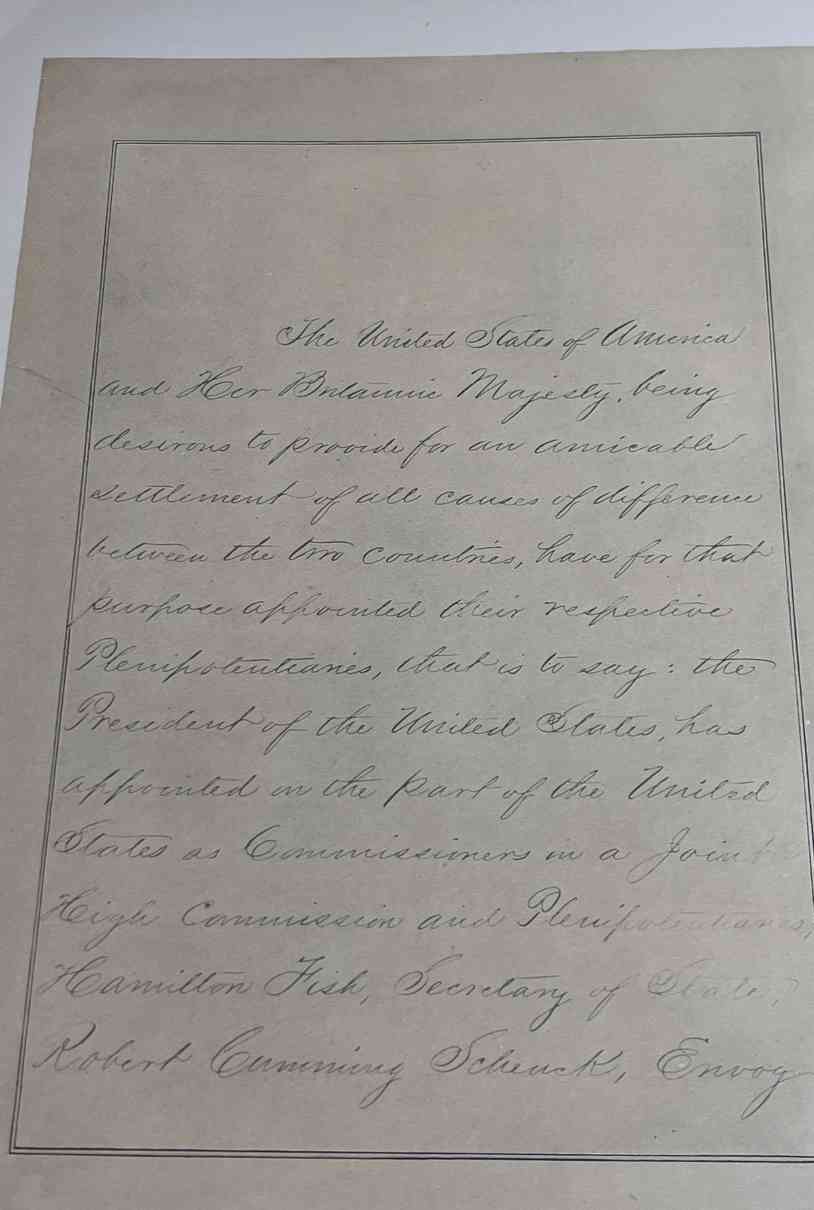 The United States of America
and Her Britannic Majesty, being
desirous to provide for an amicable
settlement of all causes of difference
between the two countries, have for that
purpose appointed their respective
Plenipotentiaries, that is to say: the
President of the United States, has
appointed on the part of the United
States as Commissioners in a Joint
High Commission and Plenipotentiaries,
Hamilton Fish, Secretary of State,
Robert Cumming Schenck, Envoy